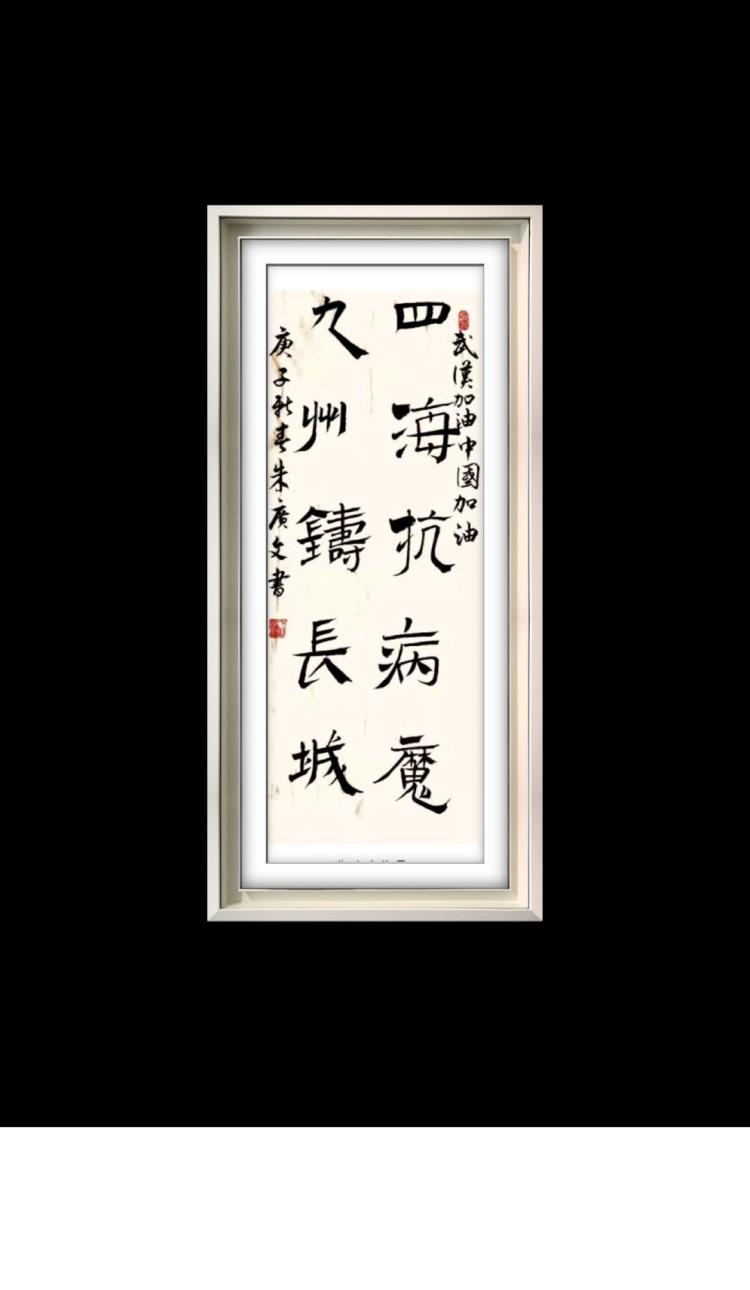 武漢加油中國加油
四海抗病魔
九州鑄長城
庚子新春朱廣文書